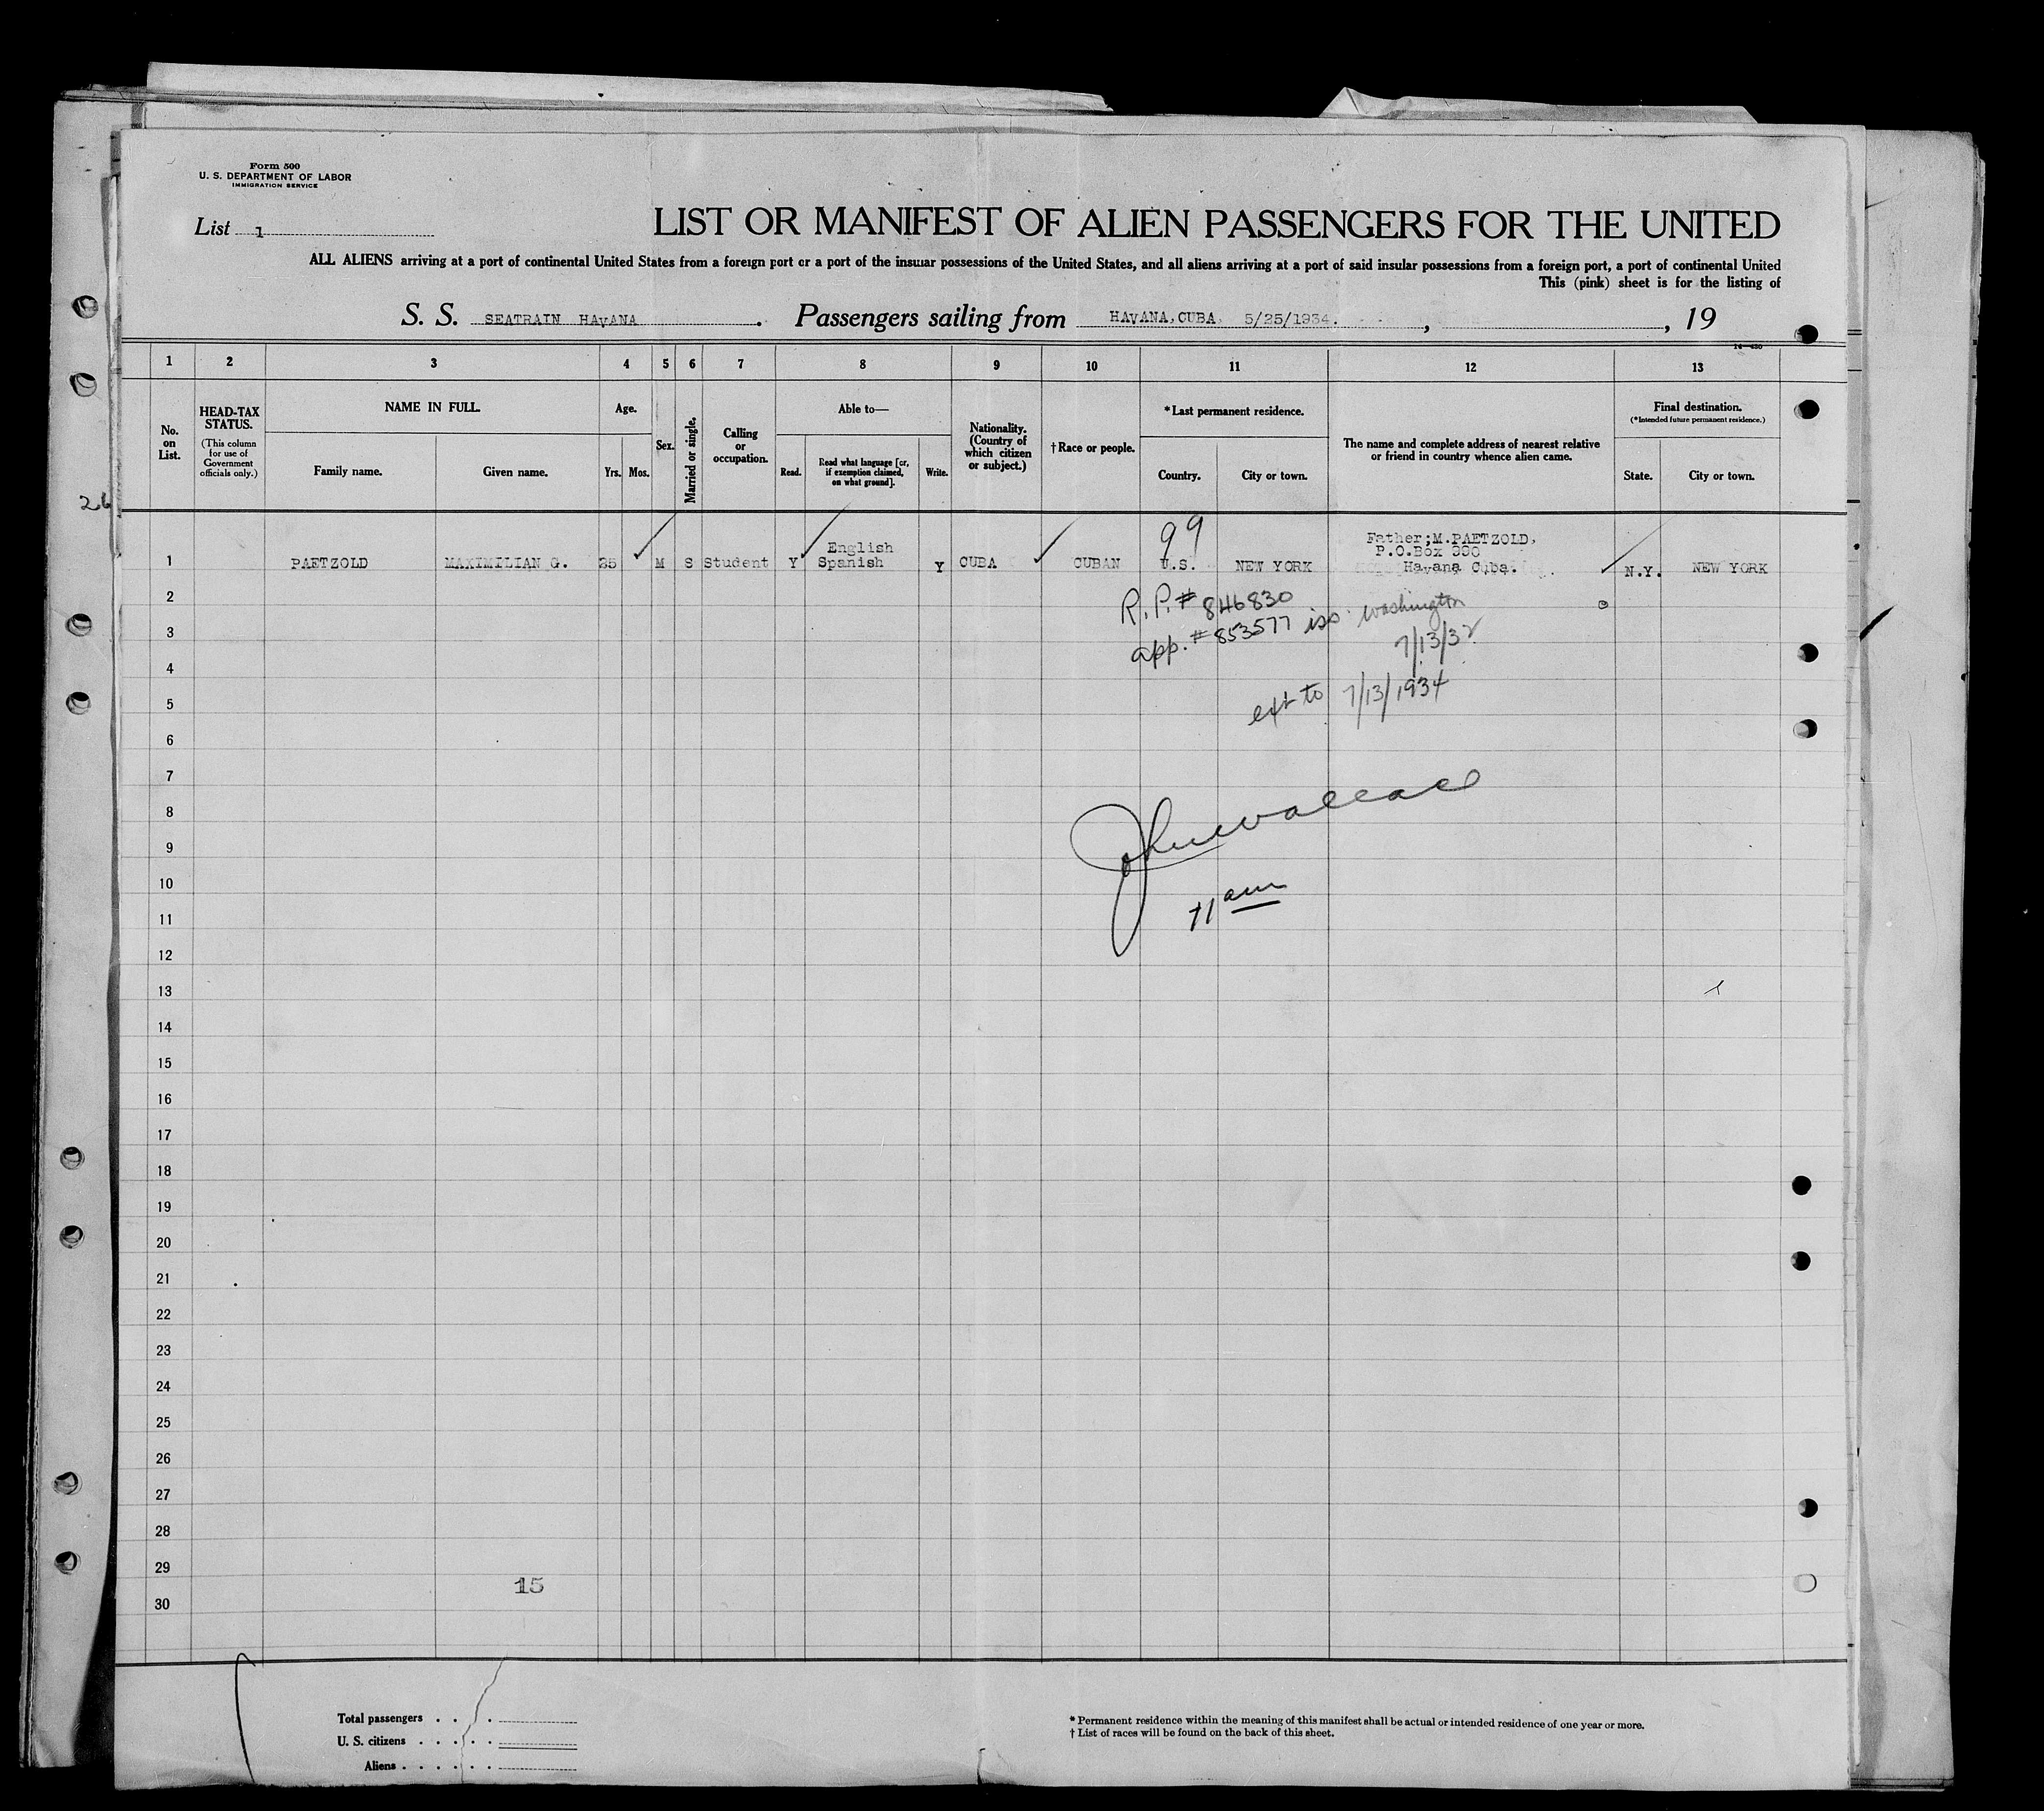 Form 500
U. S. DEPARTMENT OF LABOR
IMMIGRATION SERVICE
List 1
LIST OR MANIFEST OF ALIEN PASSENGERS FOR THE UNITED
ALL ALIENS arriving at a port of continental United States from a foreign port or a port of the insular possessions of the United States, and all aliens arriving at a port of said insular possessions from a foreign port, a port of continental United
This (pink) sheet is for the listing of
S. S. SEATRAIN HAVANA. Passengers sailing from HAVANA, CUBA. 5/25/1934. , , 19
1 2 3 4 5 6 7 8 9 10 11 12 13
No. on List.
HEAD-TAX STATUS.
(This column for use of Government officials only.)
NAME IN FULL.
Family name.
Given name.
Age.
Yrs. Mos.
Sex.
Married or single.
Calling or occupation.
Able to—
Read.
Read what language [or, if exemption claimed, on what ground].
Write.
Nationality. (Country of which citizen or subject.)
† Race or people.
* Last permanent residence.
Country.
City or town.
The name and complete address of nearest relative or friend in country whence alien came.
Final destination.
(* Intended future permanent residence.)
State.
City or town.
26
99
1 PAETZOLD MAXIMILIAN G. 25 M S Student Y English Spanish Y CUBA CUBAN U.S. NEW YORK Father;M.PAETZOLD, P.O.Box Havana Cuba. N.Y. NEW YORK
R.P.# 846830
app.# 853577 iss. washington
7/13/32
ext to 7/13/1934
John Wallace
11 am
2
3
4
5
6
7
8
9
10
11
12
13
14
15
16
17
18
19
20
21
22
23
24
25
26
27
28
29
15
30
Total passengers . . .
U. S. citizens . . . . .
Aliens . . . . . .
* Permanent residence within the meaning of this manifest shall be actual or intended residence of one year or more.
† List of races will be found on the back of this sheet.